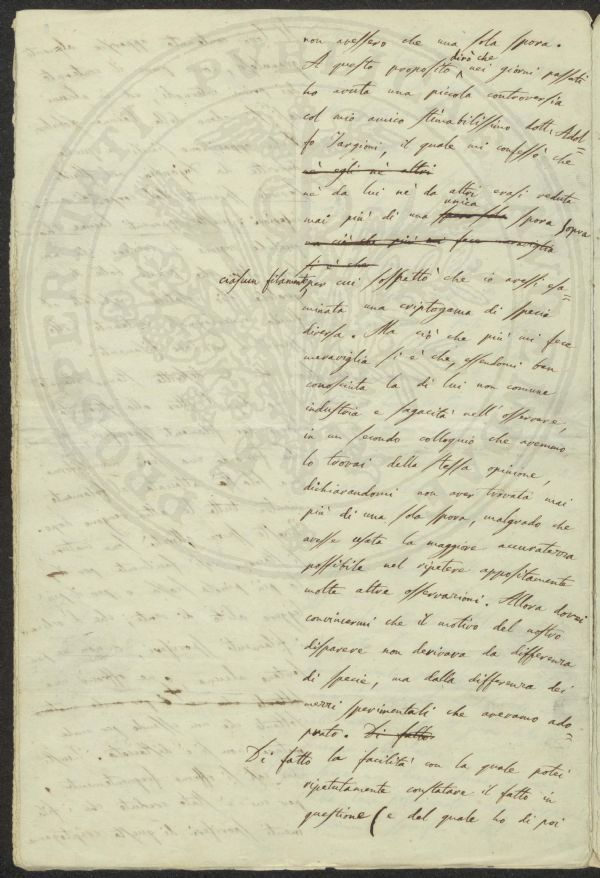 non avessero che una sola spora.
A questo proposito dirò che nei giorni passati
ho avuta una piccola controversia
col mio amico stimabilissimo dott. Adol=
fo Targioni, il quale mi confessò che
nè egli nè altri
nè da lui nè da altri erasi veduta
mai più di una spora sola unica spora sopra
ma ciò che più mi fece maraviglia
si è che
ciascun filamento, per cui sospettò che io avessi esa=
minata una criptogama di specie
diversa. Ma ciò che più mi fece
maraviglia si è che, essendomi ben
conosciuta la di lui non comune
industria e sagacità nell'osservare,
in un secondo colloquio che avemmo
lo trovai della stessa opinione,
dichiarandomi non aver trovata mai
più di una sola spora, malgrado che
avesse usata la maggiore accuratezza
possibile nel ripetere appositamente
molte altre osservazioni. Allora dovei
convincermi che il motivo del nostro
disparere non derivava da differenza
di specie, ma dalla differenza dei
mezzi sperimentali che avevamo ado=
prato. Di fatto
Di fatto la facilità con la quale potei
ripetutamente constatare il fatto in
questione (e del quale ho di poi